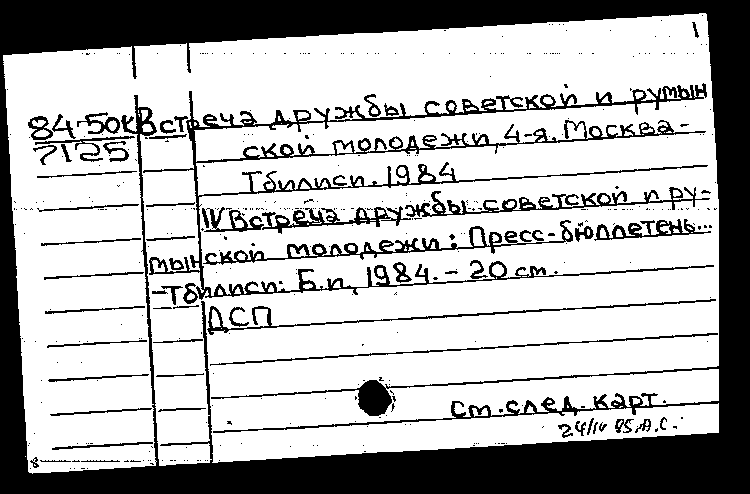 1
84-50к Встреча дружбы советской и румын
7125 ской молодежи, 4-я. Москва-
Тбилиси. 1984
IV Встреча дружбы советской и ру-
мынской молодежи: Пресс-бюллетень...
-Тбилиси: Б.и, 1984. - 20 см.
ДСП
См. след. карт.
24/IV 85. А.С.
8